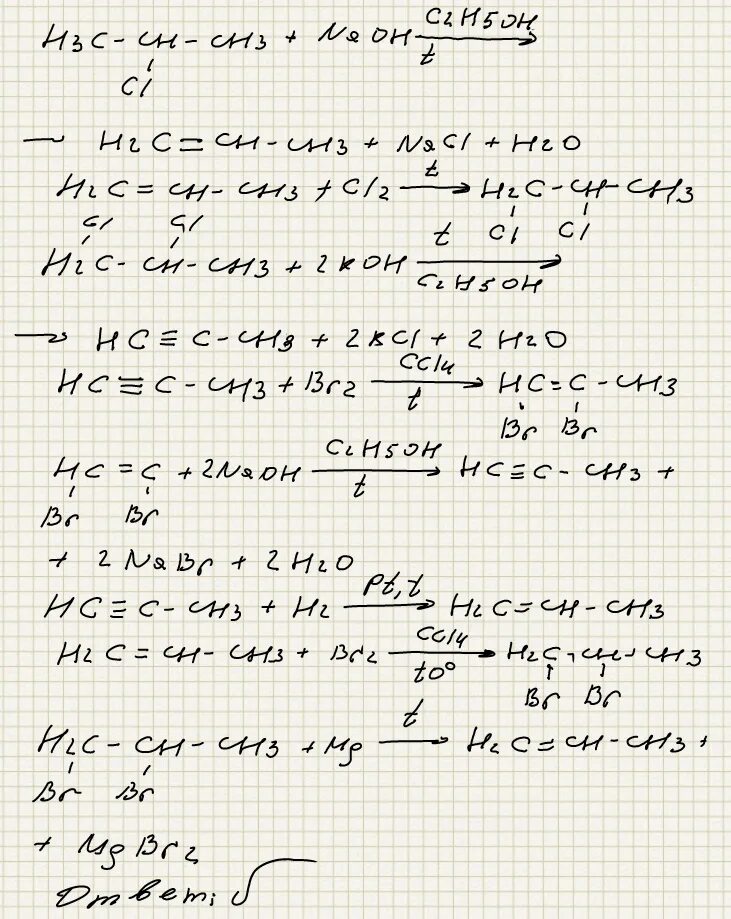 H3C - CH - CH3 + NaOH C2H5OH t
Cl
H2C = CH - CH3 + NaCl + H2O
H2C = CH - CH3 + Cl2 t H2C - CH - CH3
Cl Cl Cl Cl
H2C - CH - CH3 + 2KOH t C2H5OH
HC ≡ C - CH3 + 2KCl + 2H2O
HC ≡ C - CH3 + Br2 CCl4 t HC = C - CH3
Br Br
HC = C + 2NaOH C2H5OH t HC ≡ C - CH3 +
Br Br
+ 2NaBr + 2H2O
HC ≡ C - CH3 + H2 Pt, t H2C = CH - CH3
H2C = CH - CH3 + Br2 CCl4 t0° H2C - CH - CH3
Br Br
H2C - CH - CH3 + Mg t H2C = CH - CH3 +
Br Br
+ MgBr2
Ответ: